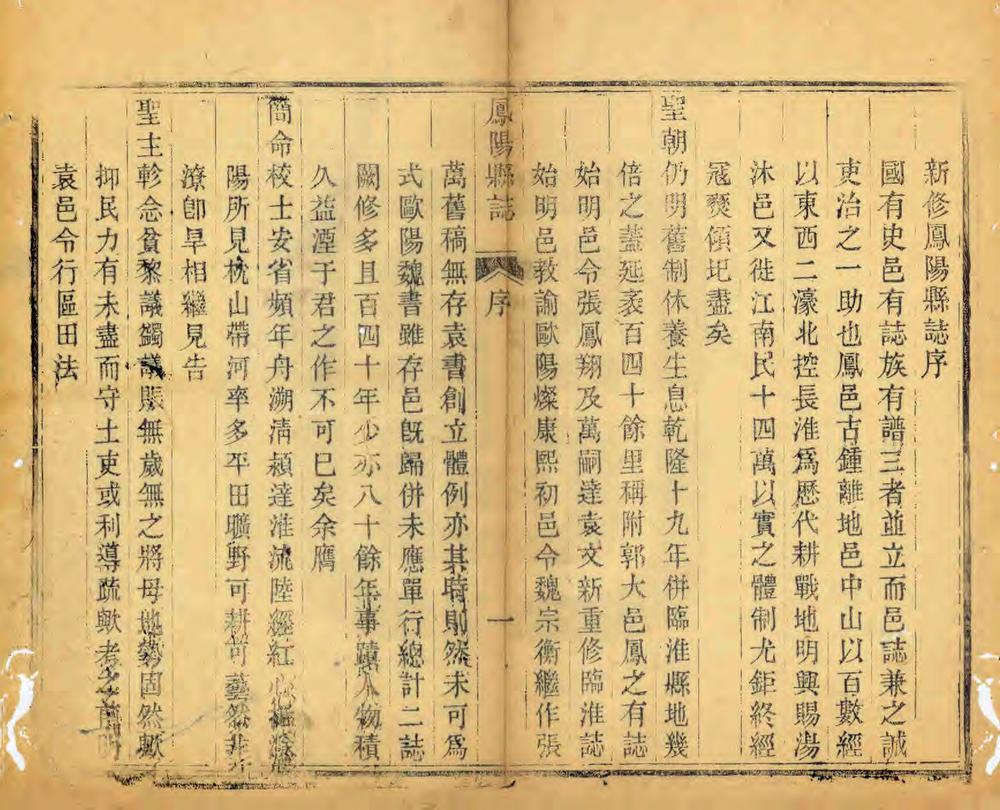 新修鳳陽縣誌序
國有史邑有誌族有譜三者並立而邑誌兼之誠
吏治之一助也鳳邑古鍾離地邑中山以百數經
以東西二濠北控長淮爲歷代耕戰地明興賜湯
沐邑又徙江南民十四萬以實之體制尤鉅終經
冦燹傾圯盡矣
聖朝仍明舊制休養生息乾隆十九年併臨淮縣地幾
倍之蓋延袤百四十餘里稱附郭大邑鳳之有誌
始明邑令張鳳翔及萬嗣達袁文新重修臨淮誌
始明邑教諭歐陽燦康熙初邑令魏宗衡繼作張
鳳陽縣誌 序 一
萬舊稿無存袁書創立體例亦其時則然未可爲
式歐陽魏書雖存邑旣歸併未應單行總計二誌
闕修多且百四十年少亦八十餘年事蹟人物積
久益湮于君之作不可已矣余膺
簡命校士安省頻年舟溯淸潁達淮流陸經紅心
陽所見枕山帶河率多平田曠野可耕可藝然非
潦卽旱相繼見告
聖主軫念貧黎議蠲議賑無歲無之將毋地勢固然歟
抑民力有未盡而守土吏或利導疏歟考之前明
袁邑令行區田法